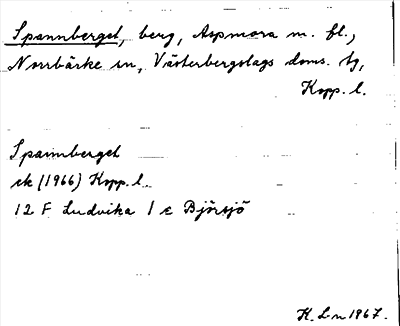 Spannberget, berg, Aspmora m. fl.,
Norrbärke sn, Västerbergslags doms. tg,
Kopp. l.
Spannberget
ek (1966) Kopp. l.
12 F Ludvika 1 e Björsjö
K. L-n 1967.